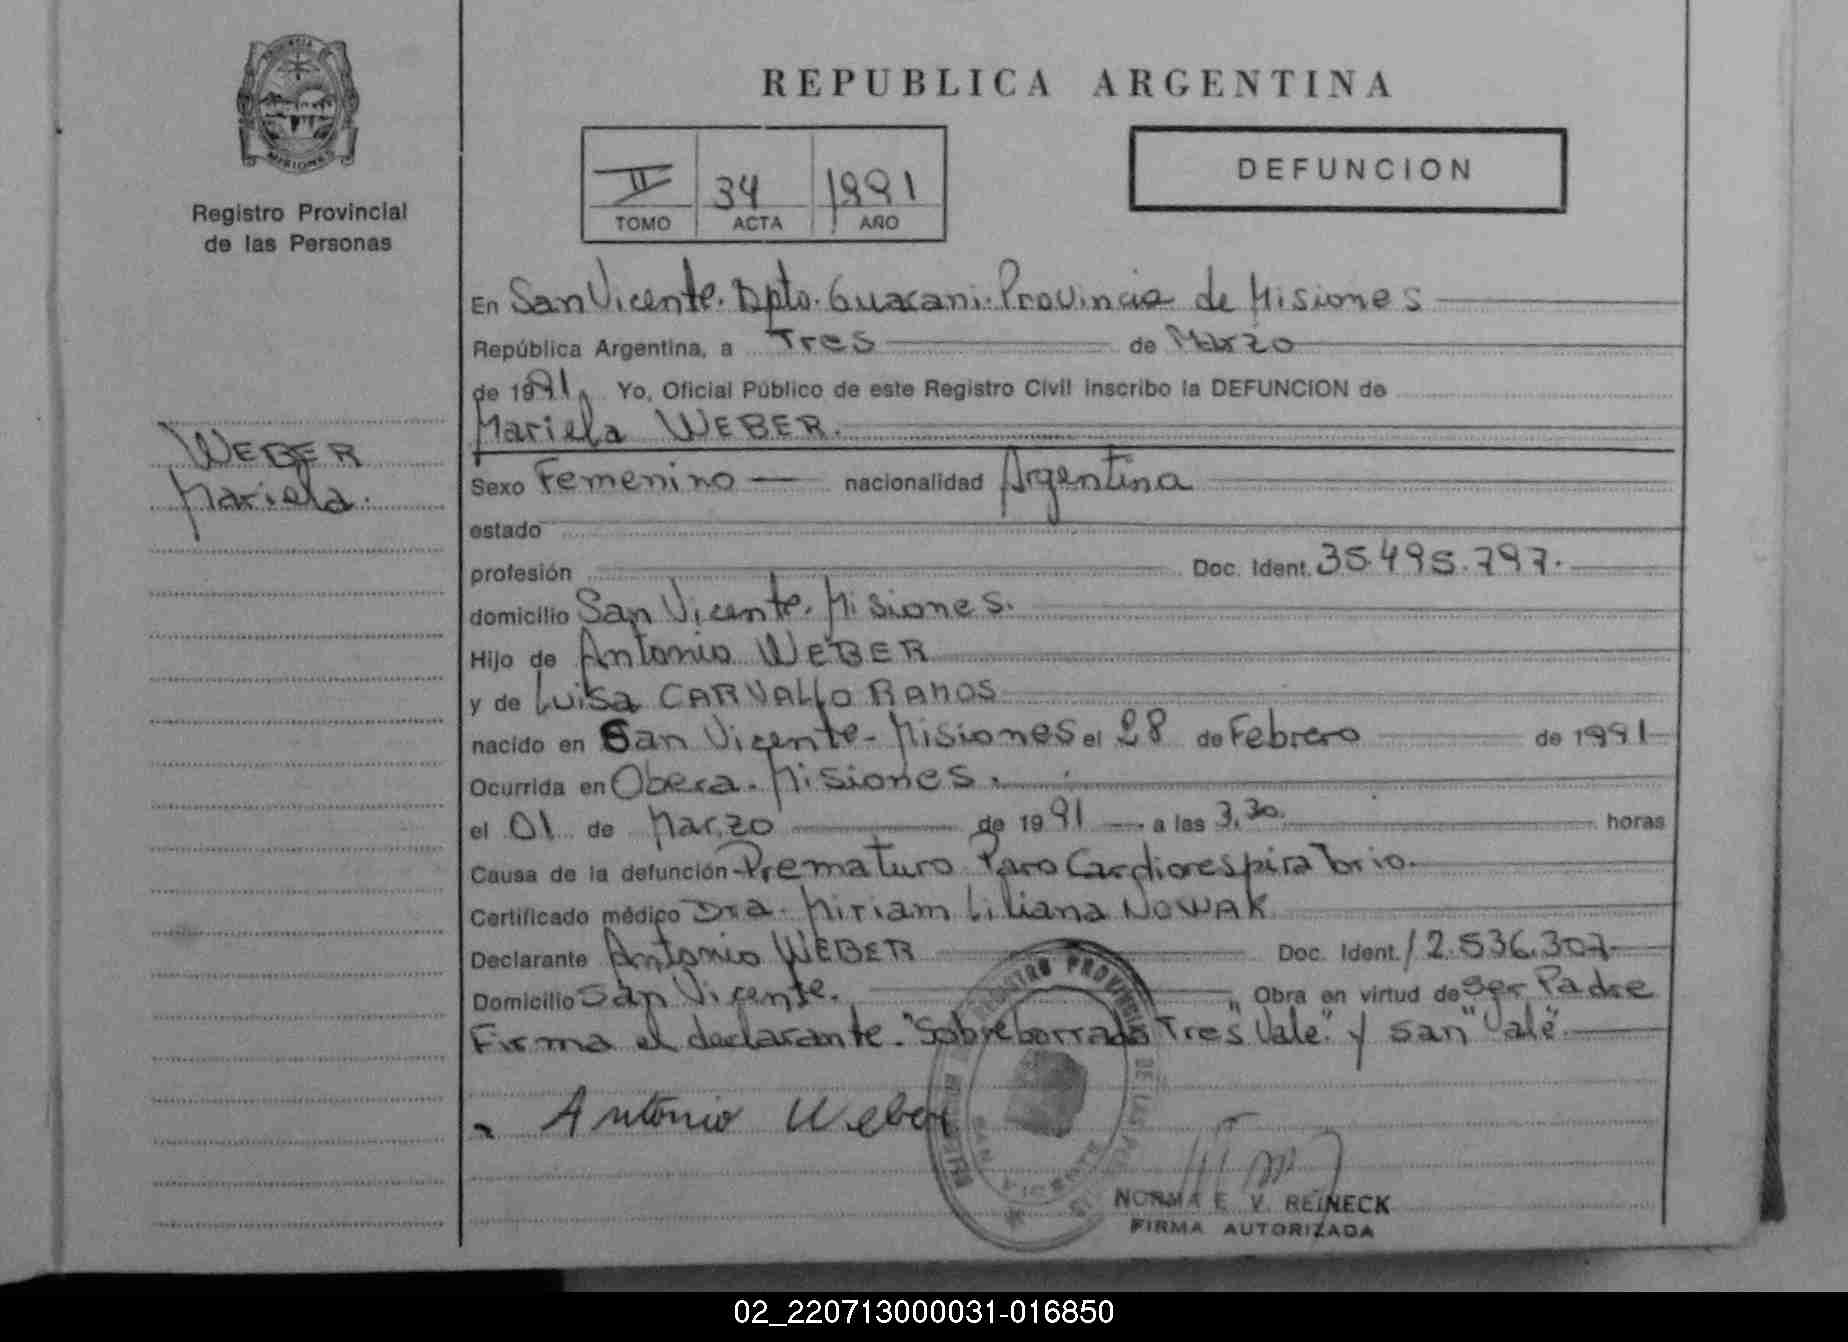 PROVINCIA DE
MISIONES
Registro Provincial
de las Personas
WEBER
Mariela.
REPUBLICA ARGENTINA
II 34 1991
TOMO ACTA AÑO
DEFUNCION
En San Vicente. Dpto. Guaraní. Provincia de Misiones
República Argentina, a Tres de Marzo
de 1991. Yo, Oficial Público de este Registro Civil inscribo la DEFUNCION de
Mariela WEBER.
Sexo Femenino nacionalidad Argentina
estado
profesión Doc. Ident. 35.495.797.
domicilio San Vicente. Misiones.
Hijo de Antonio WEBER
y de Luisa CARVALLO RAMOS
nacido en San Vicente - Misiones el 28 de Febrero de 1991
Ocurrida en Obera. Misiones.
el 01 de Marzo de 1991 a las 3,30. horas
Causa de la defunción Prematuro Paro Cardiorespiratorio.
Certificado médico Dra. Miriam Liliana NOWAK
Declarante Antonio WEBER Doc. Ident. 12.536.307
Domicilio San Vicente. Obra en virtud de Ser Padre
Firma el declarante. "Sobreborrado Tres" Vale" y San "Vale".
Antonio Weber
REGISTRO PROVINCIAL DE LAS
SAN VICENTE
NORMA E. V. REINECK
FIRMA AUTORIZADA
02_220713000031-016850